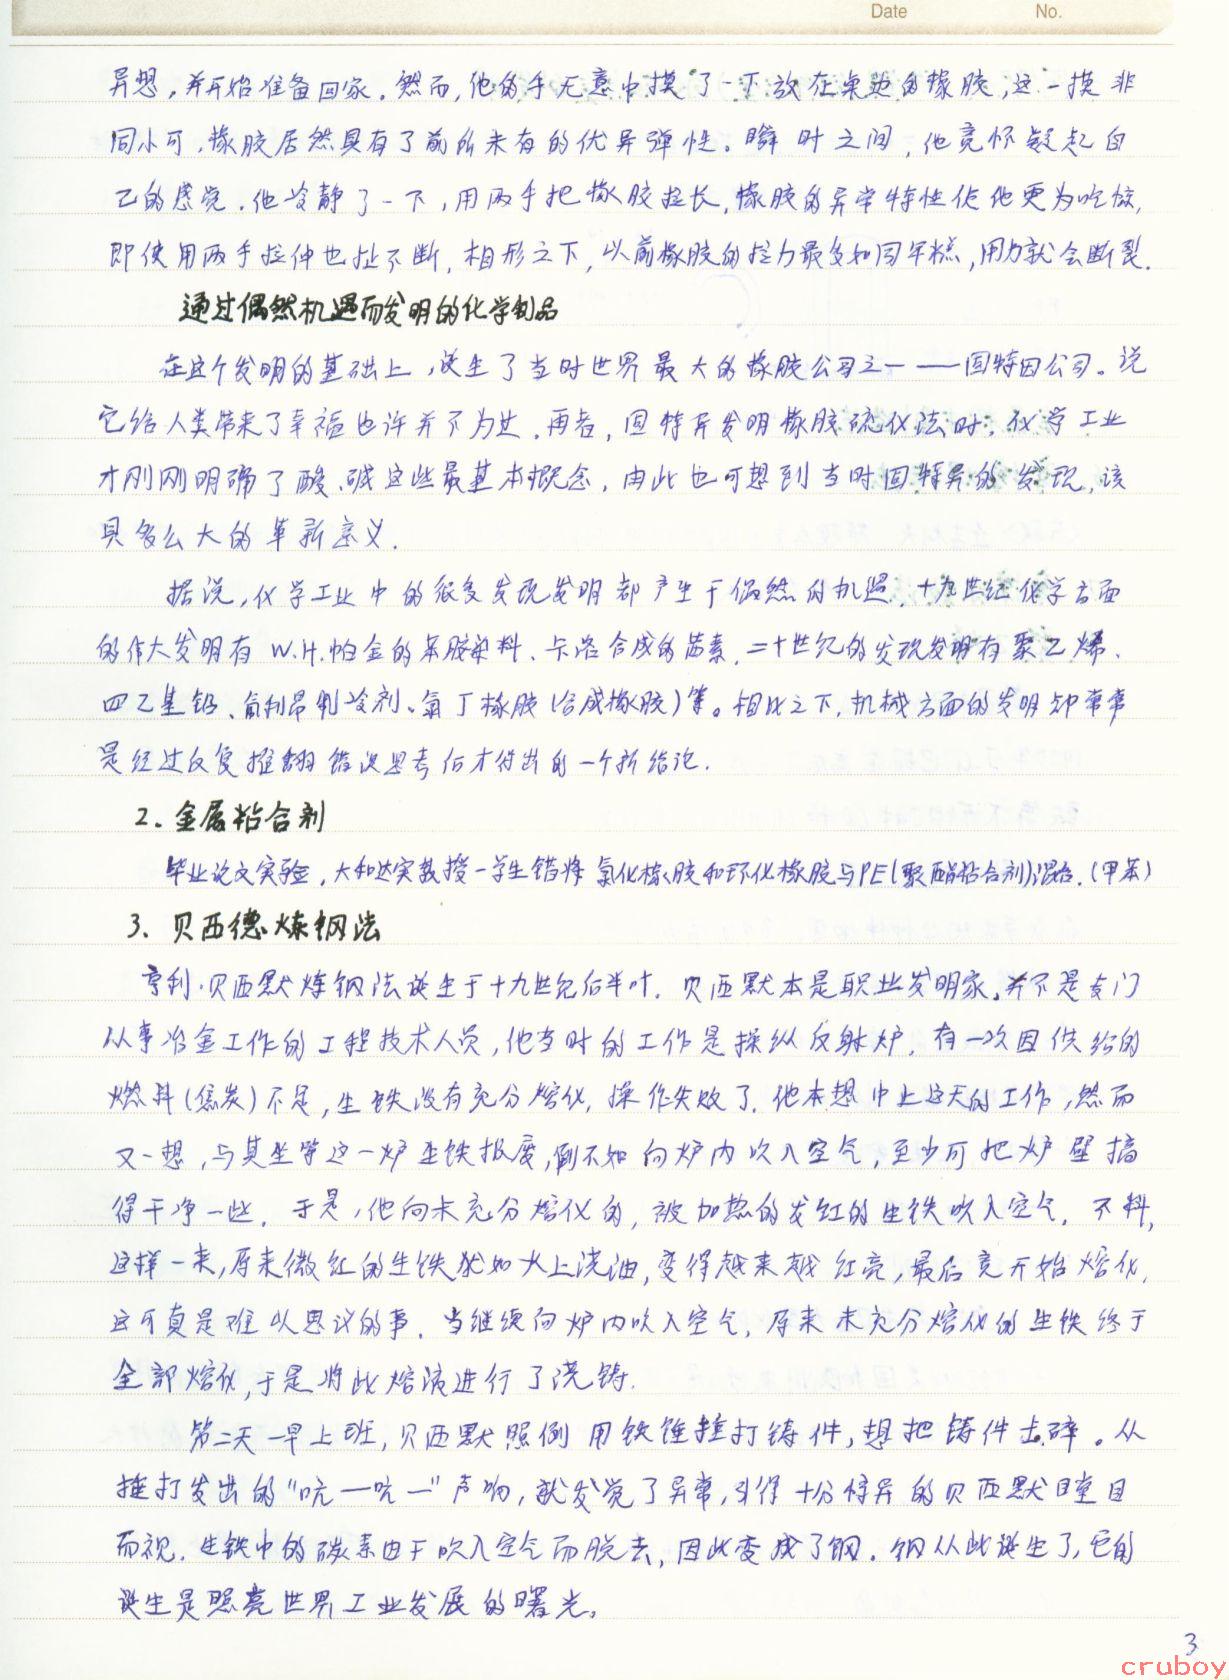 Date No.
异想，并开始准备回家。然而，他的手无意中摸了一下放在桌边的橡胶，这一摸非
同小可，橡胶居然具有了前所未有的优异弹性。瞬时之间，他竟怀疑起自
己的感觉。他冷静了一下，用两手把橡胶拉长，橡胶的异常特性使他更为吃惊，
即使用两手拉伸也扯不断，相形之下，以前橡胶的拉力最多如同年糕，用力就会断裂.
通过偶然机遇而发明的化学制品
在这个发明的基础上，诞生了当时世界最大的橡胶公司之一——固特因公司。说
它给人类带来了幸福也许并不为过。再者，固特异发明橡胶硫化法时，化学工业
才刚刚明确了酸、碱这些最基本概念，由此也可想到当时固特异的发现，该
具多么大的革新意义.
据说，化学工业中的很多发现发明都产生于偶然的机遇，十九世纪化学方面
的伟大发明有W.H.帕金的苯胺染料、卡洛合成的茜素，二十世纪的发现发明有聚乙烯、
四乙基铅、氟利昂制冷剂、氯丁橡胶（合成橡胶）等。相比之下，机械方面的发明却常常
是经过反复推翻错误思考后才得出的一个新结论.
2、金属粘合剂
毕业论文实验，大和达实教授一学生错将氯化橡胶和环化橡胶与PE（聚酯粘合剂）混合.（甲苯）
3、贝西德炼钢法
亨利·贝西默炼钢法诞生于十九世纪后半叶. 贝西默本是职业发明家，并不是专门
从事冶金工作的工程技术人员，他当时的工作是操纵反射炉. 有一次因供给的
燃料（焦炭）不足，生铁没有充分熔化，操作失败了. 他本想中止这天的工作，然而
又一想，与其坐等这一炉生铁报废，倒不如向炉内吹入空气，至少可把炉壁搞
得干净一些. 于是，他向未充分熔化的，被加热的发红的生铁吹入空气. 不料，
这样一来，原来微红的生铁犹如火上浇油，变得越来越红亮，最后竟开始熔化，
这可真是难以思议的事. 当继续向炉内吹入空气，原来未充分熔化的生铁终于
全部熔化，于是将此熔液进行了浇铸.
第二天一早上班，贝西默照例用铁锤捶打铸件，想把铸件击碎。从
捶打发出的“吭一吭一”声响，就发觉了异常，引得十分惊异的贝西默瞠目
而视. 生铁中的碳素由于吹入空气而脱去，因此变成了钢. 钢从此诞生了，它的
诞生是照亮世界工业发展的曙光。
3
cruboy